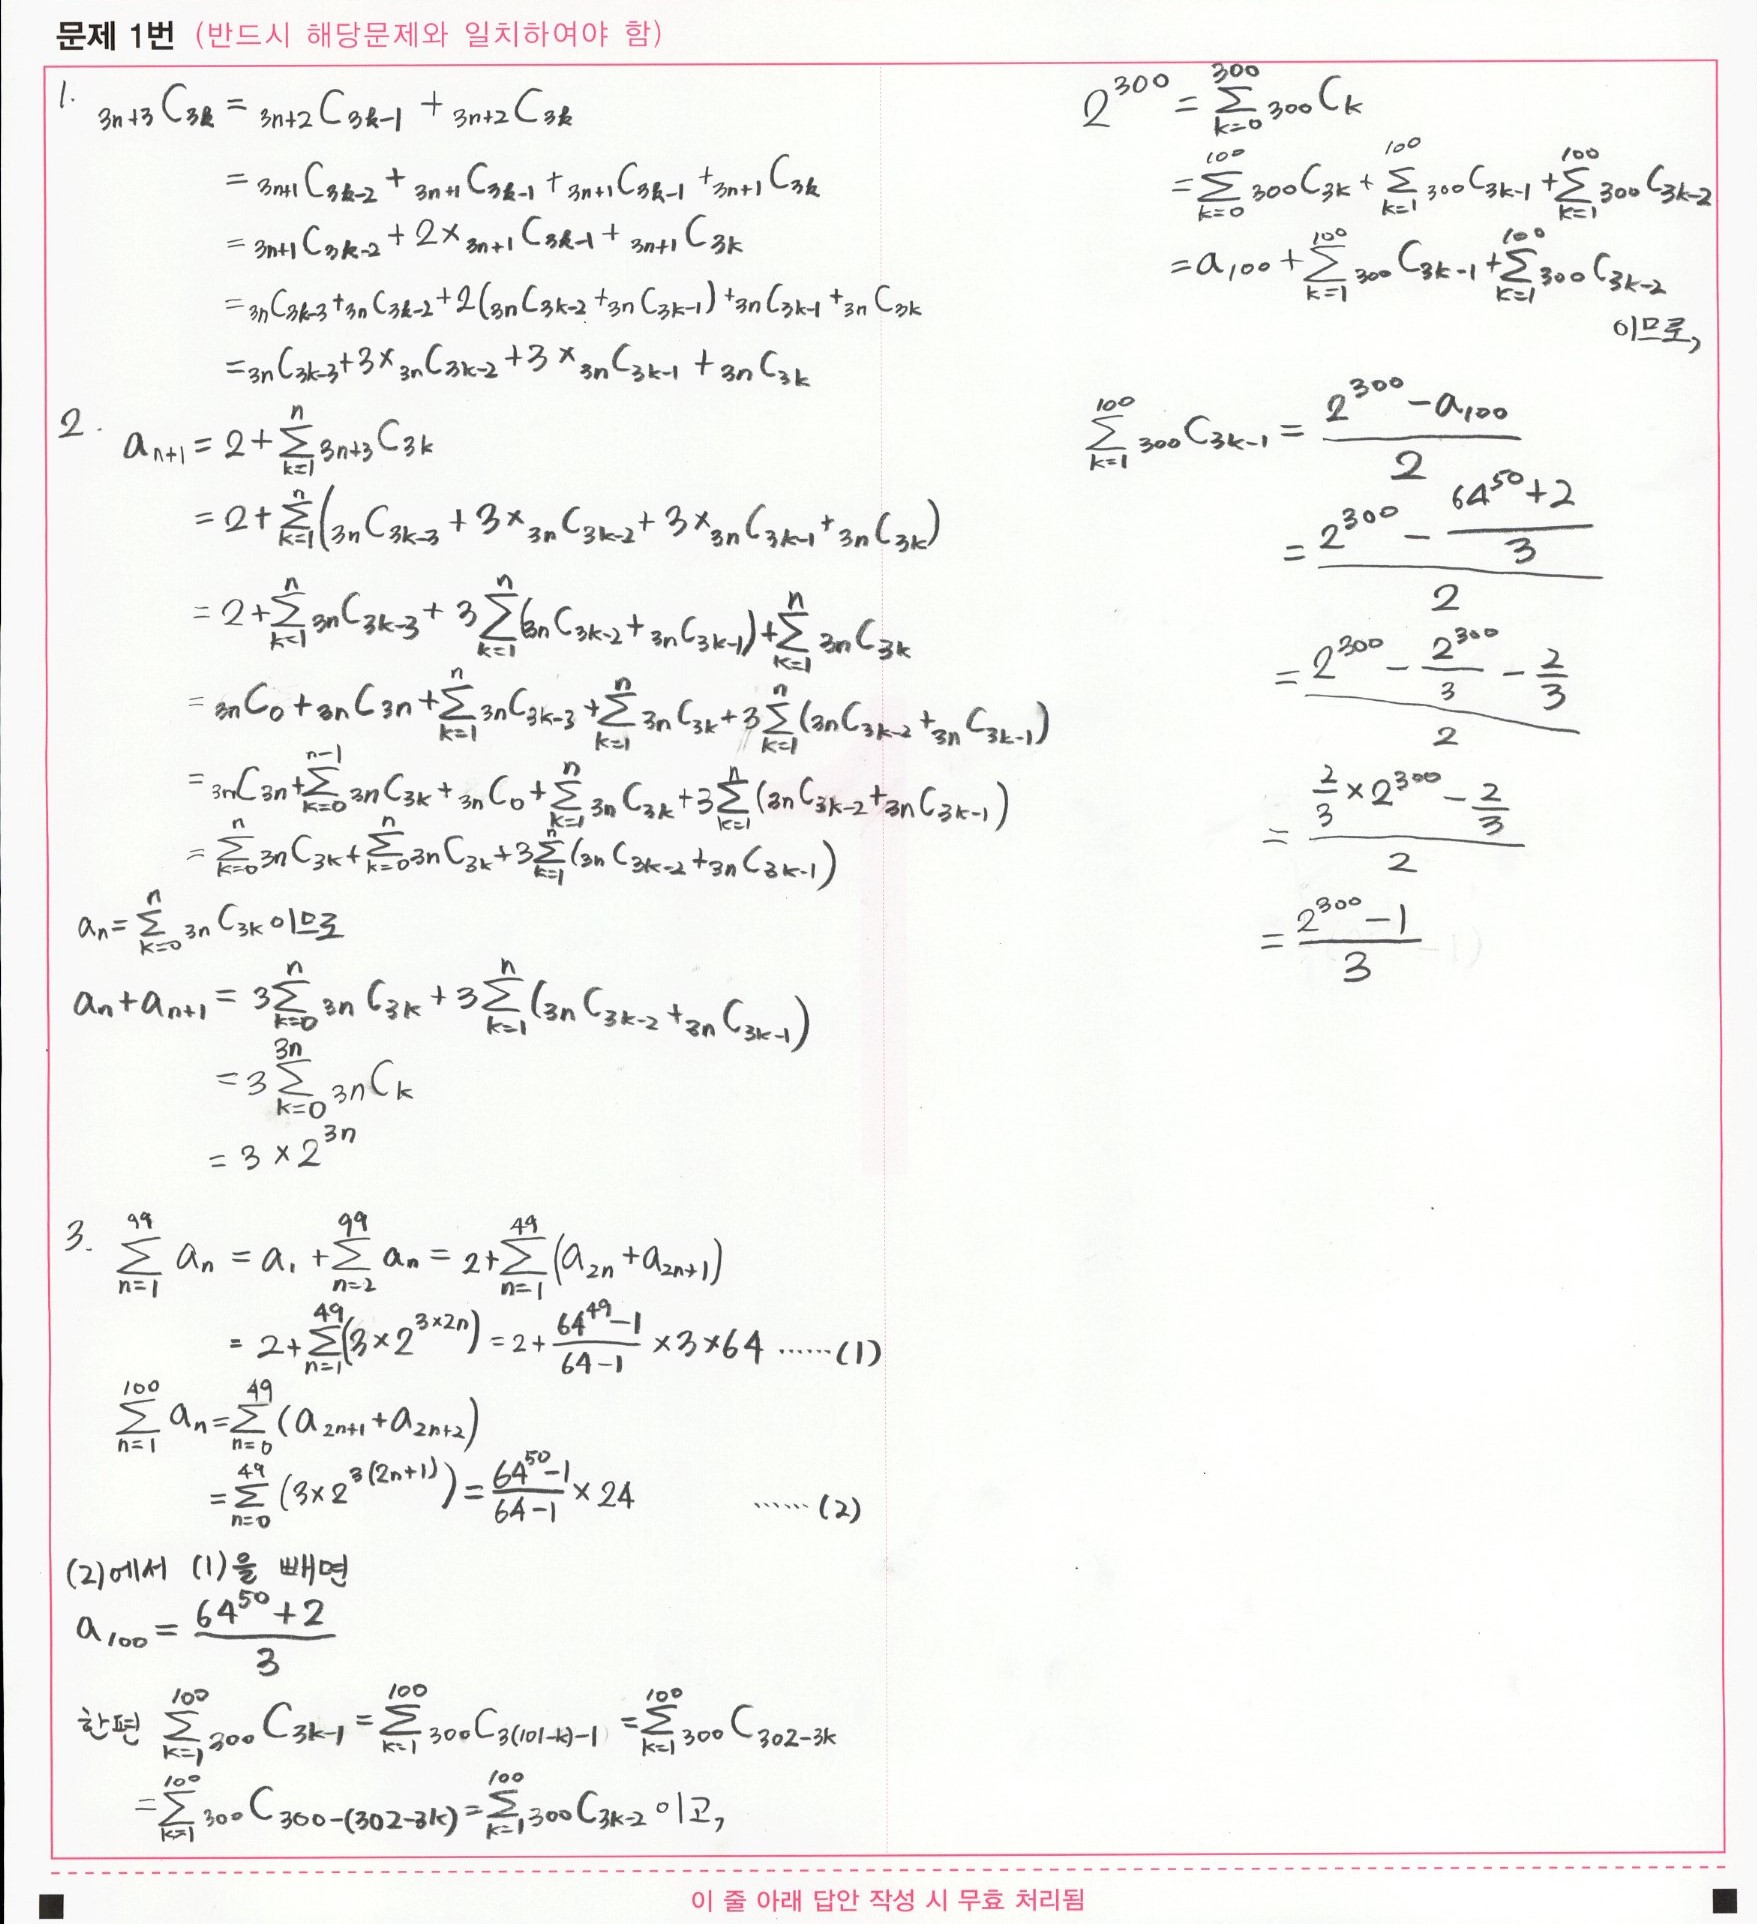 문제 1번 (반드시 해당문제와 일치하여야 함)
1. ₃ₙ₊₃C₃ₖ = ₃ₙ₊₂C₃ₖ₋₁ + ₃ₙ₊₂C₃ₖ
= ₃ₙ₊₁C₃ₖ₋₂ + ₃ₙ₊₁C₃ₖ₋₁ + ₃ₙ₊₁C₃ₖ₋₁ + ₃ₙ₊₁C₃ₖ
= ₃ₙ₊₁C₃ₖ₋₂ + 2 × ₃ₙ₊₁C₃ₖ₋₁ + ₃ₙ₊₁C₃ₖ
= ₃ₙC₃ₖ₋₃ + ₃ₙC₃ₖ₋₂ + 2(₃ₙC₃ₖ₋₂ + ₃ₙC₃ₖ₋₁) + ₃ₙC₃ₖ₋₁ + ₃ₙC₃ₖ
= ₃ₙC₃ₖ₋₃ + 3 × ₃ₙC₃ₖ₋₂ + 3 × ₃ₙC₃ₖ₋₁ + ₃ₙC₃ₖ
2. aₙ₊₁ = 2 + Σ_{k=1}^{n} ₃ₙ₊₃C₃ₖ
= 2 + Σ_{k=1}^{n} (₃ₙC₃ₖ₋₃ + 3 × ₃ₙC₃ₖ₋₂ + 3 × ₃ₙC₃ₖ₋₁ + ₃ₙC₃ₖ)
= 2 + Σ_{k=1}^{n} ₃ₙC₃ₖ₋₃ + 3 Σ_{k=1}^{n} (₃ₙC₃ₖ₋₂ + ₃ₙC₃ₖ₋₁) + Σ_{k=1}^{n} ₃ₙC₃ₖ
= ₃ₙC₀ + ₃ₙC₃ₙ + Σ_{k=1}^{n} ₃ₙC₃ₖ₋₃ + Σ_{k=1}^{n} ₃ₙC₃ₖ + 3 Σ_{k=1}^{n} (₃ₙC₃ₖ₋₂ + ₃ₙC₃ₖ₋₁)
= ₃ₙC₃ₙ + Σ_{k=0}^{n-1} ₃ₙC₃ₖ + ₃ₙC₀ + Σ_{k=1}^{n} ₃ₙC₃ₖ + 3 Σ_{k=1}^{n} (₃ₙC₃ₖ₋₂ + ₃ₙC₃ₖ₋₁)
= Σ_{k=0}^{n} ₃ₙC₃ₖ + Σ_{k=0}^{n} ₃ₙC₃ₖ + 3 Σ_{k=1}^{n} (₃ₙC₃ₖ₋₂ + ₃ₙC₃ₖ₋₁)
aₙ = Σ_{k=0}^{n} ₃ₙC₃ₖ 이므로
aₙ + aₙ₊₁ = 3 Σ_{k=0}^{n} ₃ₙC₃ₖ + 3 Σ_{k=1}^{n} (₃ₙC₃ₖ₋₂ + ₃ₙC₃ₖ₋₁)
= 3 Σ_{k=0}^{3n} ₃ₙCₖ
= 3 × 2^{3n}
3. Σ_{n=1}^{99} aₙ = a₁ + Σ_{n=2}^{99} aₙ = 2 + Σ_{n=1}^{49} (a₂ₙ + a₂ₙ₊₁)
= 2 + Σ_{n=1}^{49} (3 × 2^{3×2n}) = 2 + (64^{49} - 1)/(64 - 1) × 3 × 64 ······ (1)
Σ_{n=1}^{100} aₙ = Σ_{n=0}^{49} (a₂ₙ₊₁ + a₂ₙ₊₂)
= Σ_{n=0}^{49} (3 × 2^{3(2n+1)}) = (64^{50} - 1)/(64 - 1) × 24 ······ (2)
(2)에서 (1)을 빼면
a₁₀₀ = (64^{50} + 2)/3
한편 Σ_{k=1}^{100} ₃₀₀C₃ₖ₋₁ = Σ_{k=1}^{100} ₃₀₀C_{3(101-k)-1} = Σ_{k=1}^{100} ₃₀₀C_{302-3k}
= Σ_{k=1}^{100} ₃₀₀C_{300-(302-3k)} = Σ_{k=1}^{100} ₃₀₀C₃ₖ₋₂ 이고,
2^{300} = Σ_{k=0}^{300} ₃₀₀Cₖ
= Σ_{k=0}^{100} ₃₀₀C₃ₖ + Σ_{k=1}^{100} ₃₀₀C₃ₖ₋₁ + Σ_{k=1}^{100} ₃₀₀C₃ₖ₋₂
= a₁₀₀ + Σ_{k=1}^{100} ₃₀₀C₃ₖ₋₁ + Σ_{k=1}^{100} ₃₀₀C₃ₖ₋₂
이므로,
Σ_{k=1}^{100} ₃₀₀C₃ₖ₋₁ = (2^{300} - a₁₀₀)/2
= (2^{300} - (64^{50} + 2)/3)/2
= (2^{300} - 2^{300}/3 - 2/3)/2
= (2/3 × 2^{300} - 2/3)/2
= (2^{300} - 1)/3
이 줄 아래 답안 작성 시 무효 처리됨